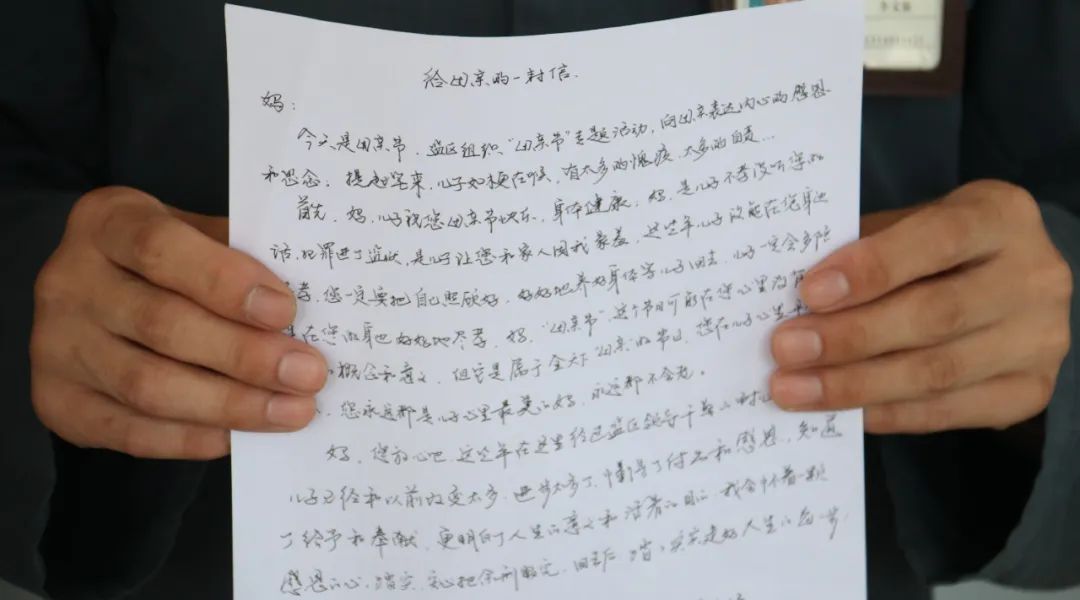 给母亲的一封信.
妈：
今天是母亲节，监区组织"母亲节"专题活动，向母亲表达内心的感恩
和思念。提起笔来，儿子如梗在喉，有太多的愧疚，太多的自责...
首先，妈，儿子祝您母亲节快乐，身体健康。妈，是儿子不孝没听您的
话，犯罪进了监狱，是儿子让您和家人因我蒙羞，这些年儿子没能在您身边
孝，您一定要把自己照顾好，好好地养好身体等儿子回去，儿子一定会多陪
在您的身边好好地尽孝。妈，"母亲节"这个节日可能在您心里没有
概念和意义，但它是属于全天下"母亲"的节日，您在儿子心里
，您永远都是儿子心里最美的妈，永远都不会老。
妈，您放心吧，这些年在这里经过监区领导干警的
儿子已经和以前改变太多，进步太多了，懂得了付出和感恩，知道
了给予和奉献，更明白了人生的意义和活着的目的，我会怀着一颗
感恩的心，踏实、安心把余刑服完，回去后，踏踏实实走好人生的每一步